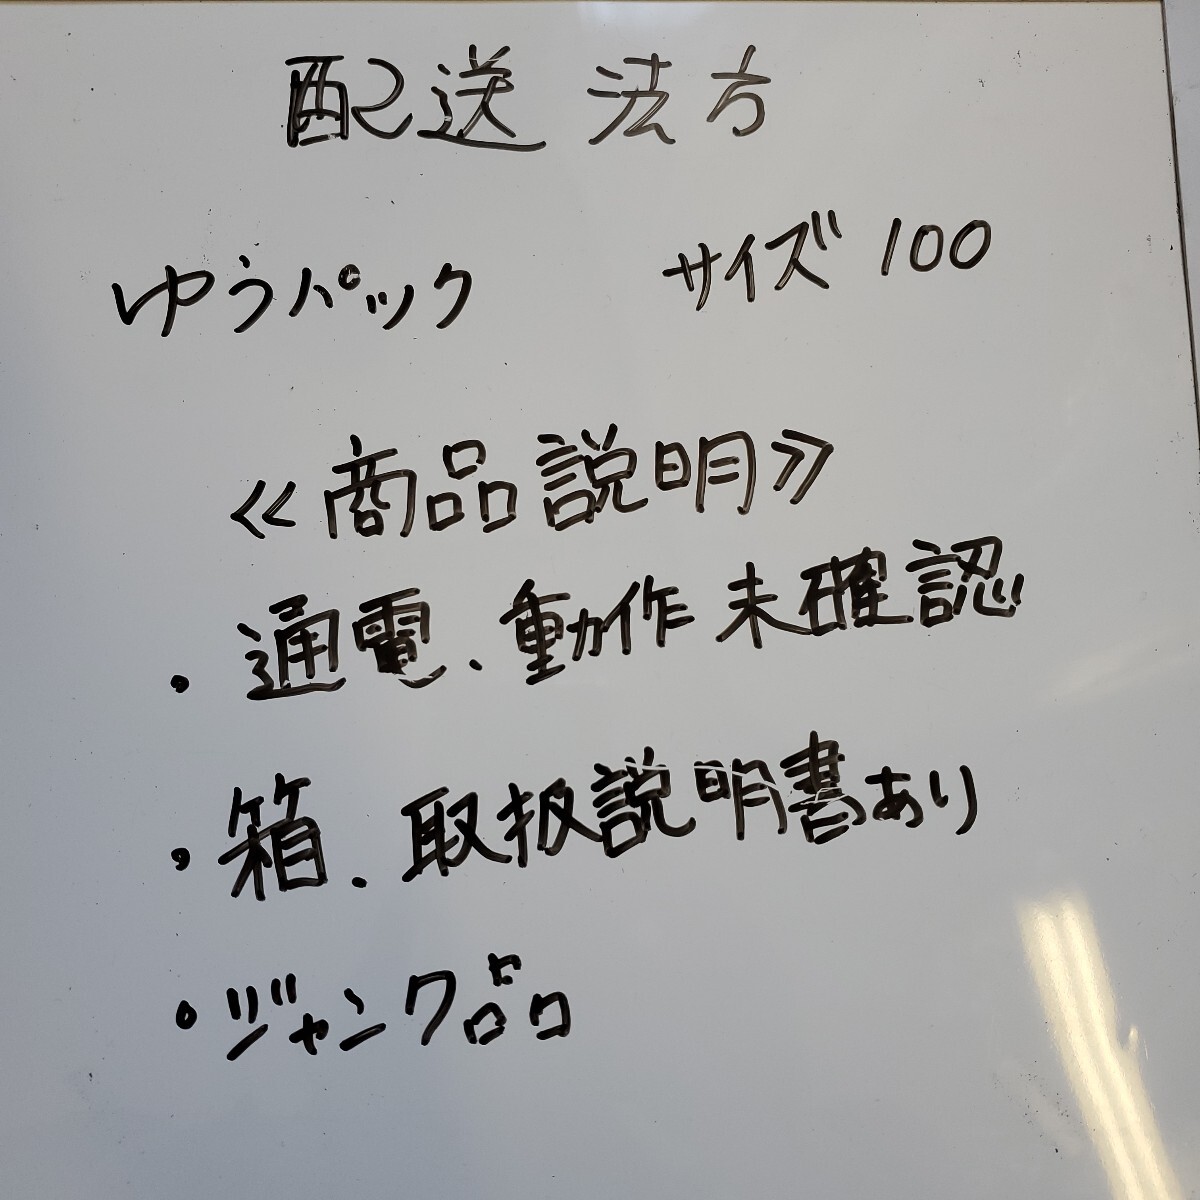 配送 法方
ゆうパック サイズ 100
≪商品説明≫
・通電、動作 未確認
・箱、取扱説明書あり
・ジャンク品